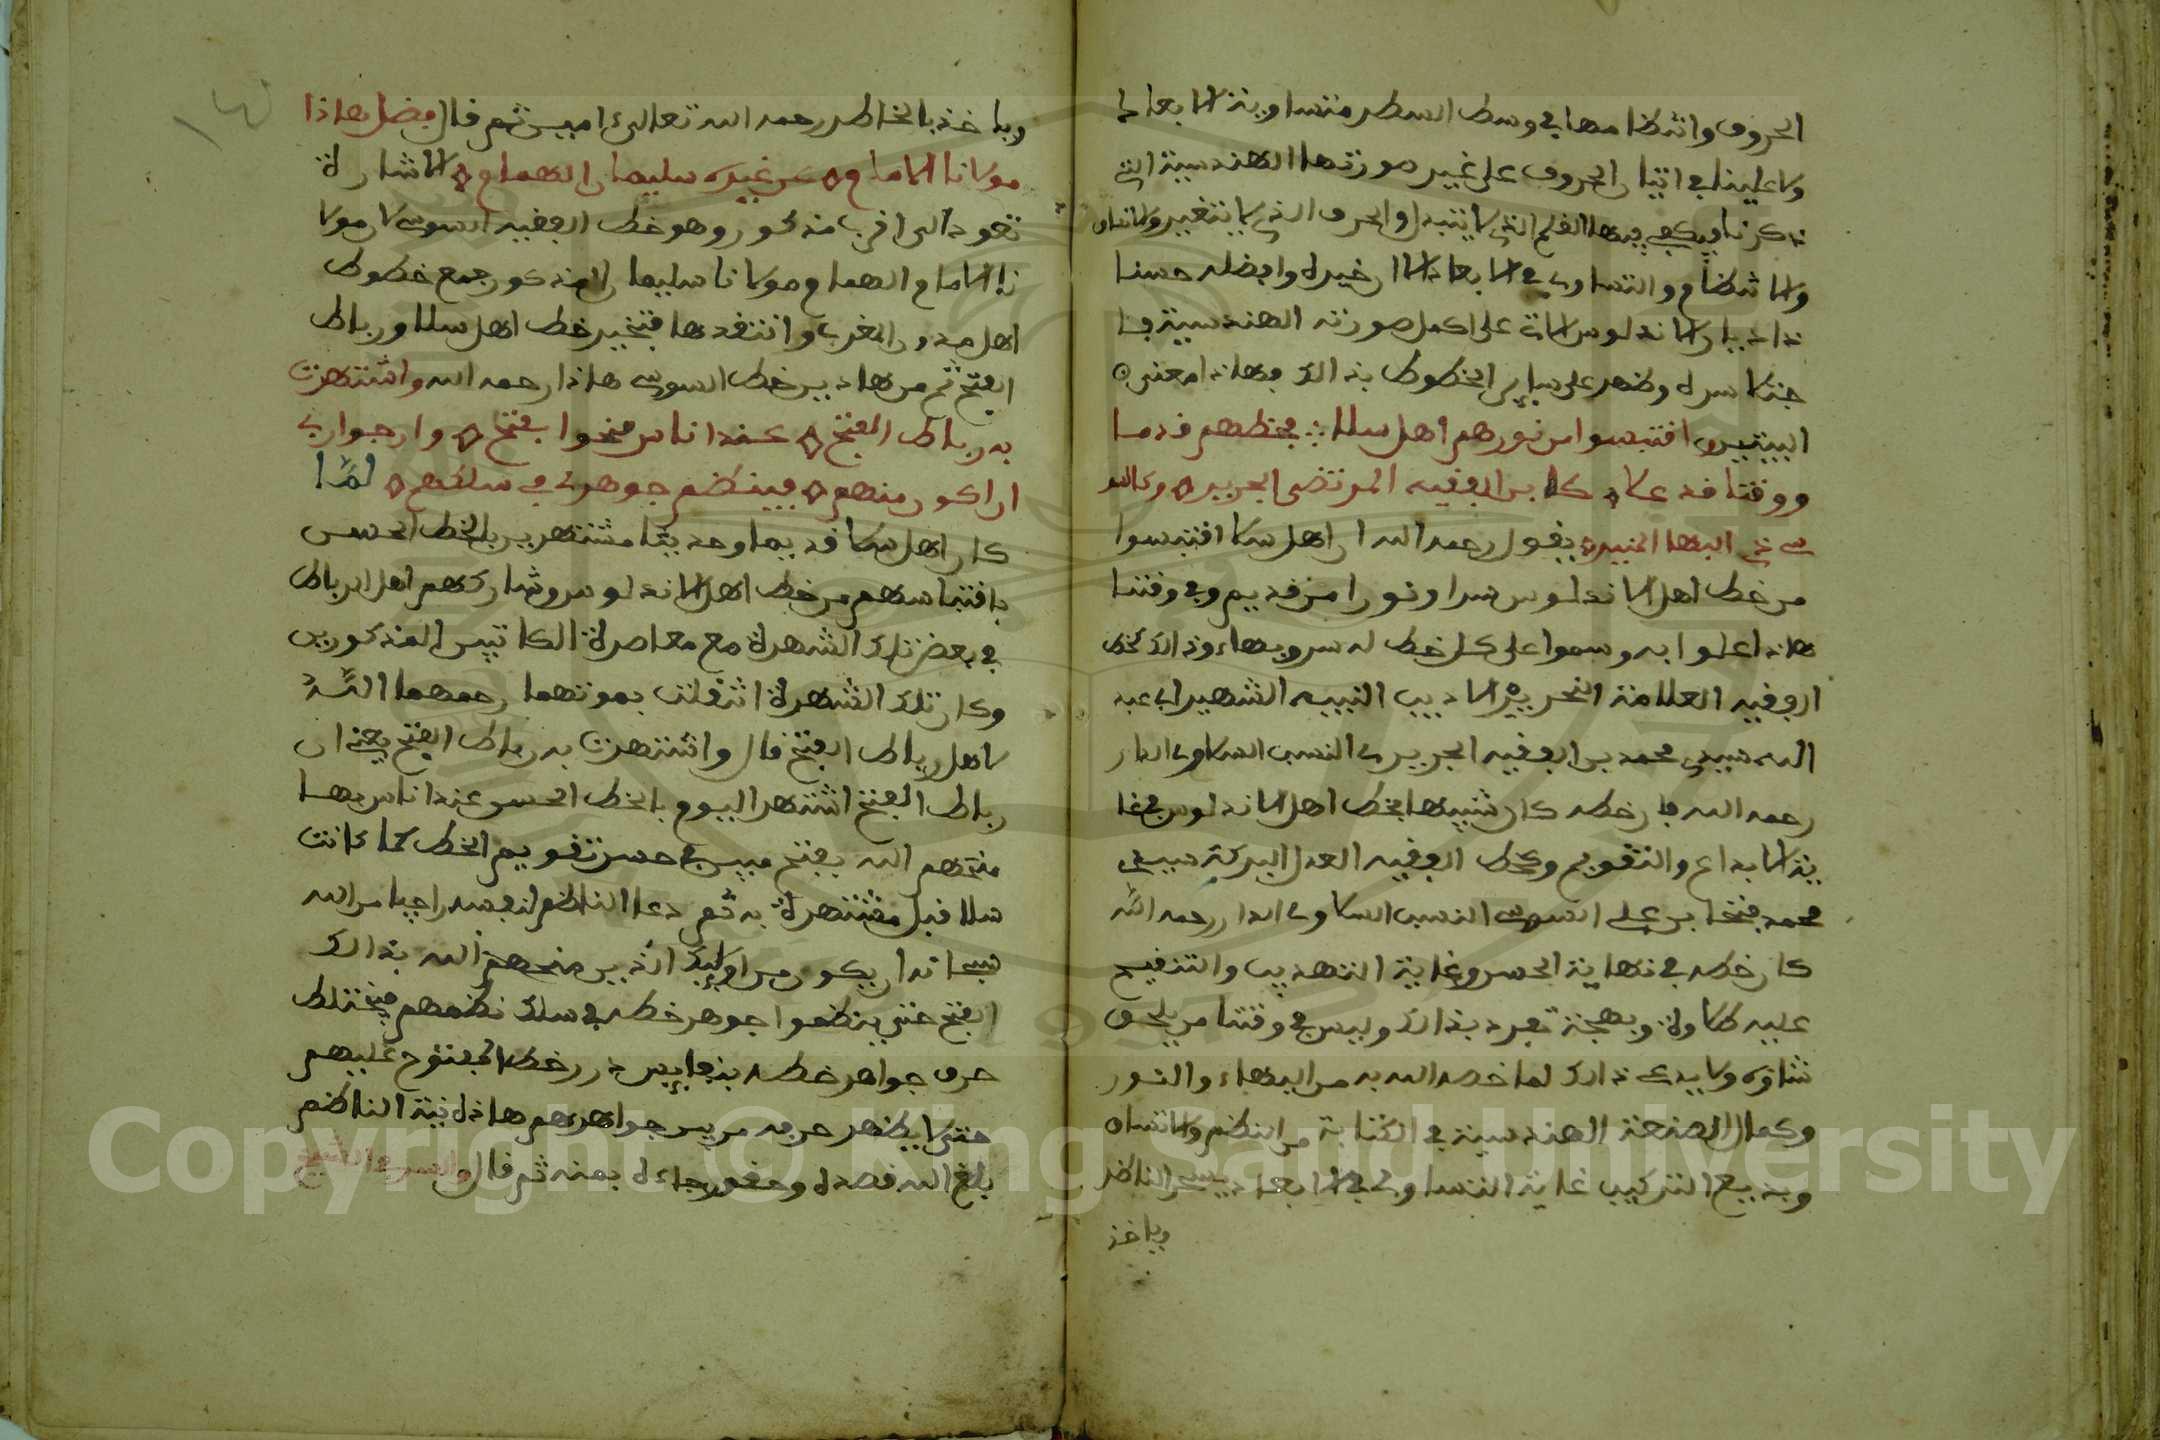 الحروف وانتظامها في وسط السطر متساوية الابعاد
ولا علينا في اتيان الحروف على غير صورتها الهندسية التي
ذكرنا فيكفي فيها القلم الذي لا يتبدل والحرف الذي لا يتغير والاتساق
والانتظام والتساوي في الابعاد الا ان خيره وافضله حسنا
ذاد بان الاندلوس لاته على اكمل صورته الهندسية
سره وظهر على ساير الخطوط بذالك فهاذا معنى
البيتين اقتبسوا من نورهم اهل سلا فخطهم قد سا
ووقتنا قد علا كابن الفقيه المرتضى الحرير وكالسو
سي ذي البها المنير يقول رحمه الله ان اهل سلا اقتبسوا
من خط اهل الاندلوس سرا ونورا من قديم وفي وقتنا
هاذا علوا به وسموا على كل خط له سر وبهاء وذالك كخط
الفقيه العلامة النحرير الاديب النبيه الشهير ابي عبد
الله سيدي محمد بن الفقيه الحريري النسب السلاوي الدار
رحمه الله فان خطه كان شبيها بخط اهل الاندلوس في غا
ية الابداع والتقويم وكخط الفقيه العدل البركة سيدي
محمد فتحا بن علي السوسي النسب السلاوي الدار رحمه الله
كان خطه في نهاية الحسن وغاية التهذيب والتنقيح
عليه طلاوة وبهجة تفرد بذالك وليس في وقتنا من يلحق
شاوه ولا يدعي ذالك لما خصه الله به من البهاء والنور
وكمال الصنعة الهندسية في الكتابة من النظم والاتساق
وبديع التركيب غاية التساوي في الابعاد يسحر الناظر
وياخذ
وياخذ بالخاطر رحمه الله تعالى امين ثم قال فضل هاذا
مولانا الامام عن غيره سليمان الهمام الاشارة
تعود الى اقرب مذكور وهو خط الفقيه السوسي لان مولا
نا الامام الهمام مولانا سليمان المذكور جمع خطوط
اهل مدن المغرب وانتقدها فتخير خط اهل سلا ورباط
الفتح ثم من هاذين خط السوسي هاذا رحمه الله واشتهرت
به رباط الفتح عند اناس منحوا بفتح وارجوا بي
ان اكون منهم فينظم جوهري في سلكهم لما
كان اهل سلا قديما وحديثا مشتهرين بالخط الحسن
باقتباسهم من خط اهل الاندلوس وشاركهم اهل الرباط
في بعض تلك الشهرة مع معاصرة الكاتبين المذكورين
وكان تلك الشهرة انتقلت بموتهما رحمهما الله
لاهل رباط الفتح قال واشتهرت به رباط الفتح يعني ان
رباط الفتح اشتهر اليوم بالخط الحسن عند اناس بها
منحهم الله بفتح مبين في حسن تقويم الخط كما كانت
سلا قبل مشتهرة به ثم دعا الناظم لنفسه راجيا من الله
سبحانه ان يكون من اولئك الذين منحهم الله بذالك
الفتح حتى ينظموا جوهر خطه في سلك نظمهم فيختلط
حرف جواهر خطه بنفايس درر خط المفتوح عليهم
حتى لا يظهر حرفه من بين جواهرهم هاذه نية الناظم
بلغ الله قصده وحقق رجاءه بمنه ثم قال